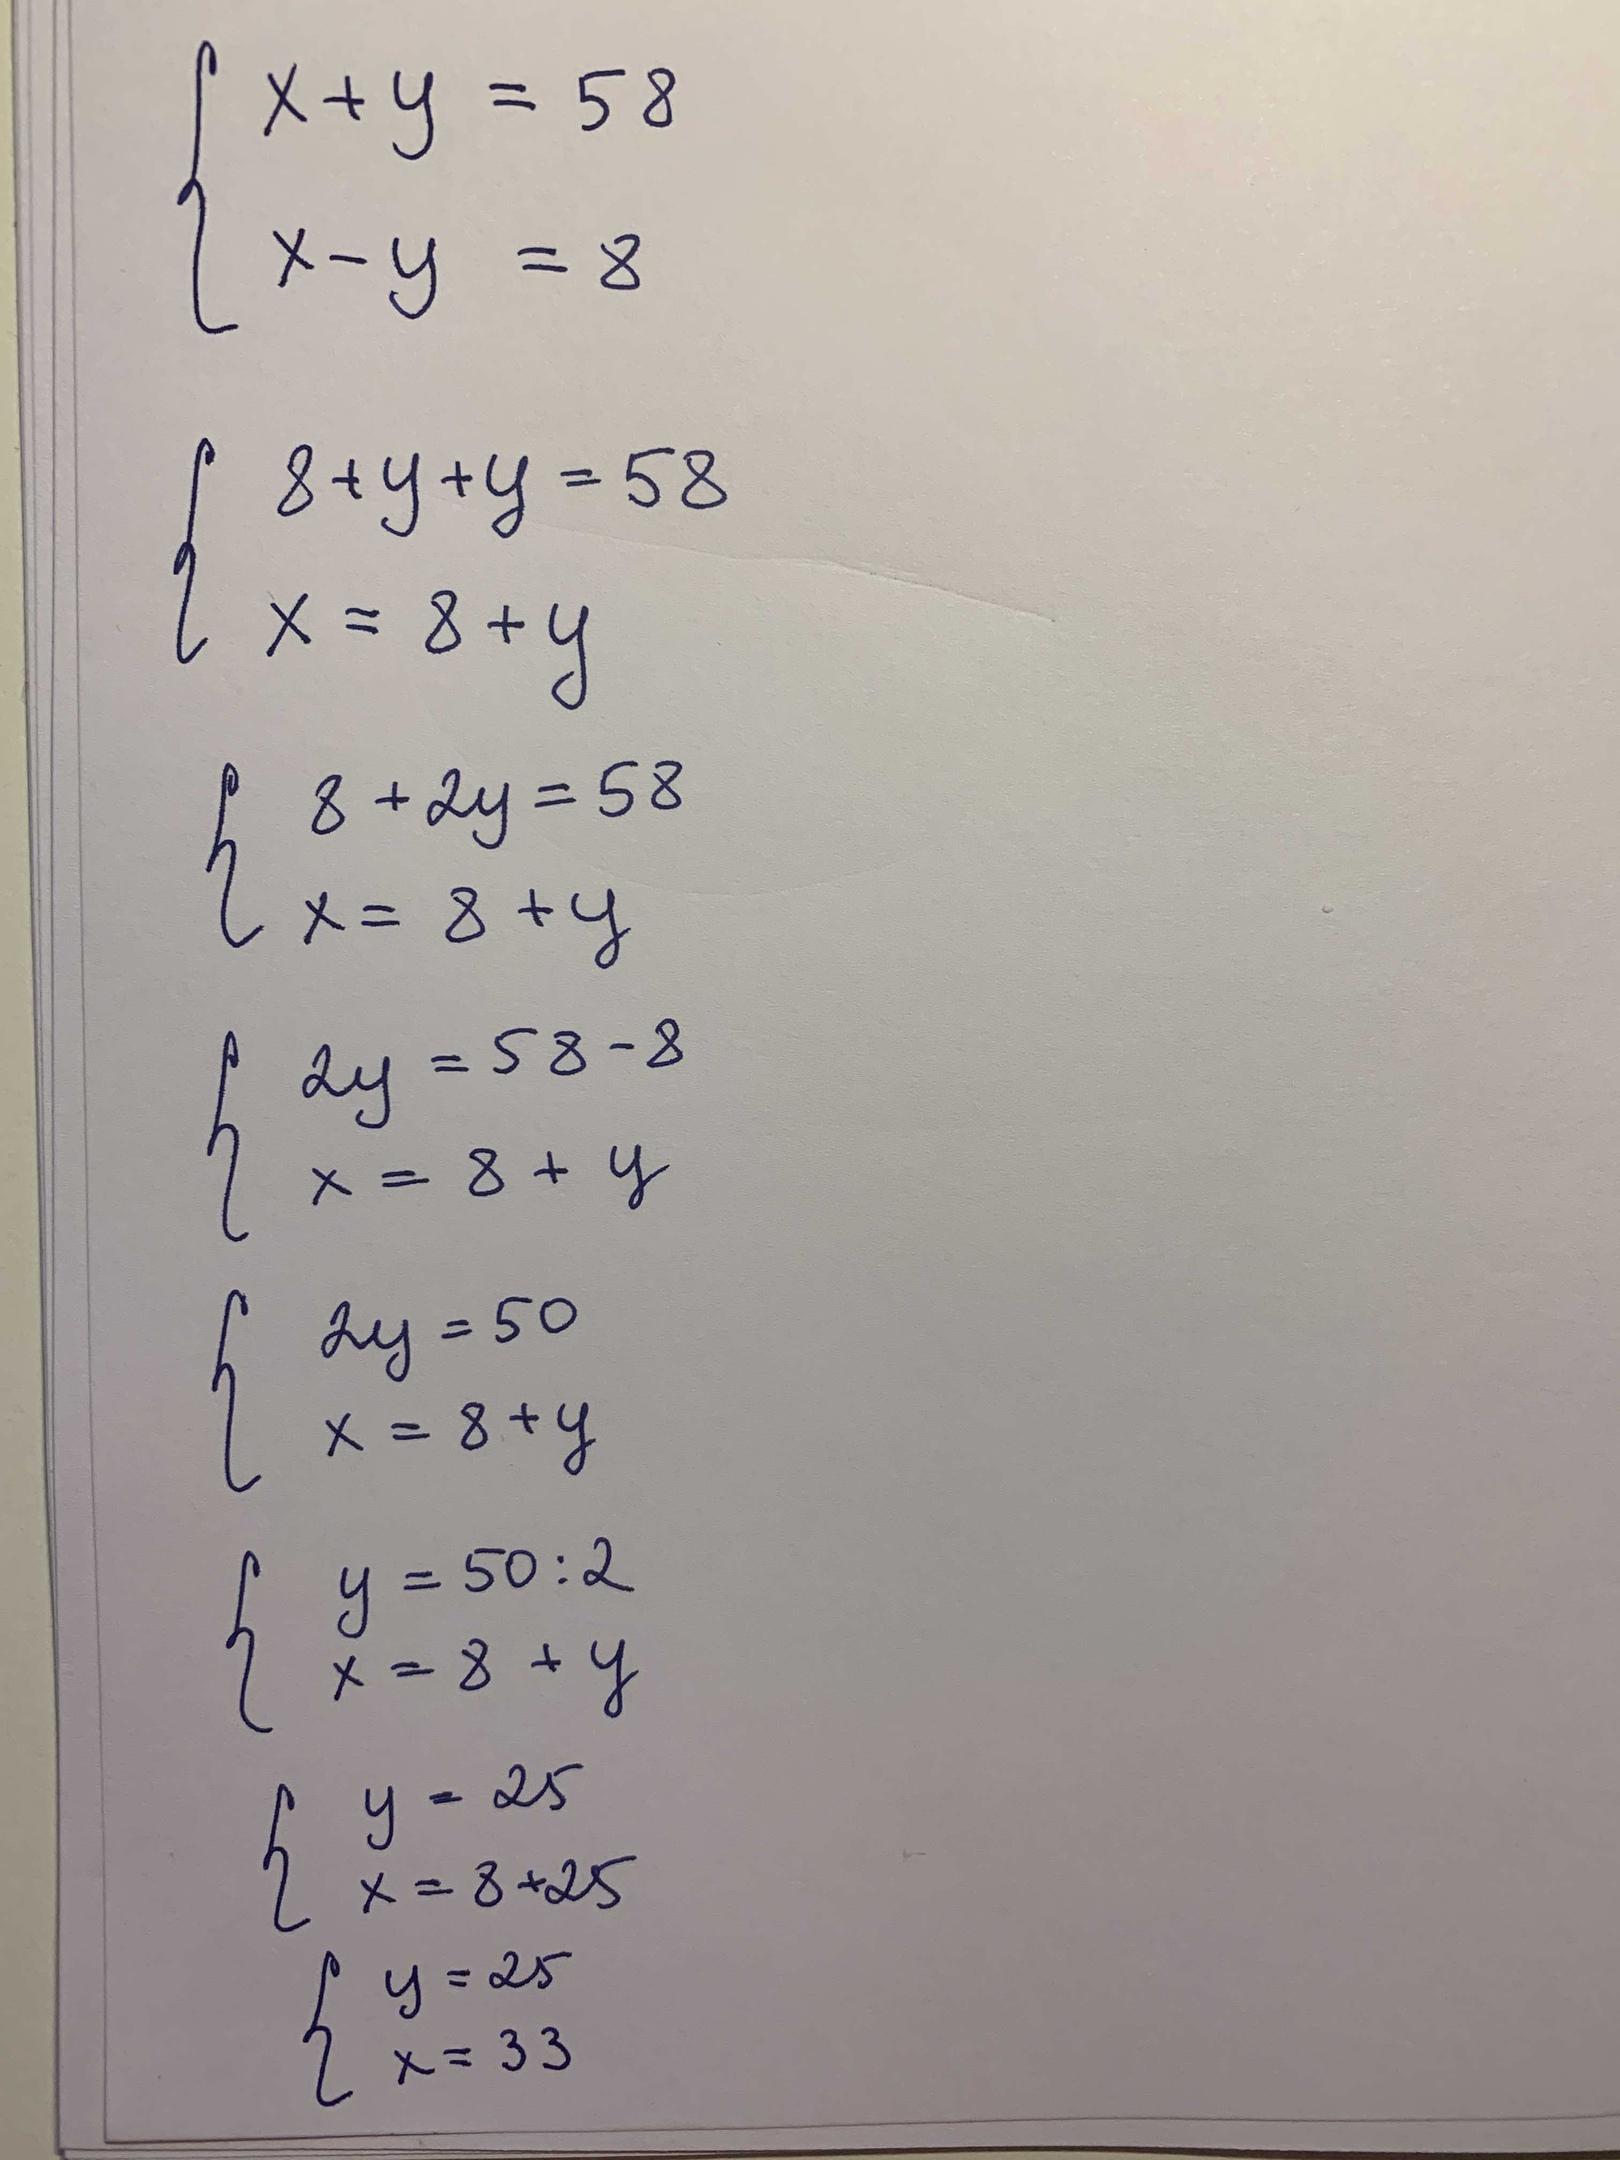 x+y = 58
x-y = 8
8+y+y=58
x = 8+y
8+2y=58
x= 8+y
2y =58-8
x = 8+ y
2y =50
x = 8+y
y = 50:2
x = 8 + y
y = 25
x = 8+25
y = 25
x = 33